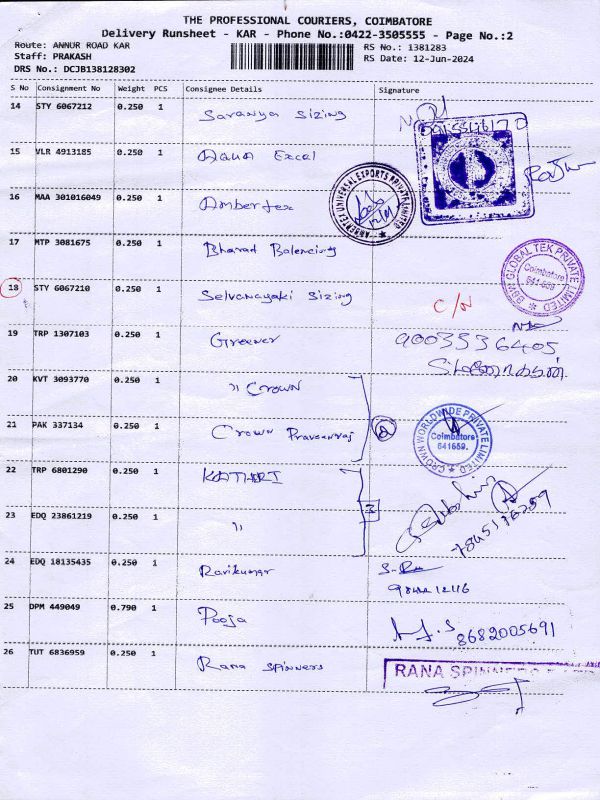 THE PROFESSIONAL COURIERS, COIMBATORE
Delivery Runsheet - KAR - Phone No.:0422-3505555 - Page No.:2
Route: ANNUR ROAD KAR
RS No.: 1381283
Staff: PRAKASH
RS Date: 12-Jun-2024
DRS No.: DCJB138128302
S No Consignment No Weight PCS Consignee Details Signature
14 STY 6067212 0.250 1 Saranya Sizing
15 VLR 4913185 0.250 1 Excel
16 MAA 301016049 0.250 1 Ambertex
AMBERTEX UNIVERSAL EXPORTS PRIVATE LIMITED
17 MTP 3081675 0.250 1 Bharad Balencing
GLOBAL TEK PRIVATE LIMITED
Coimbatore
641 659
18 STY 6067210 0.250 1 Selvanayaki Sizing C/N
19 TRP 1307103 0.250 1 Greener 9003536405
20 KVT 3093770 0.250 1 " Crown
21 PAK 337134 0.250 1 Crown Praveenraj 2
CROWN WORLDWIDE PRIVATE LIMITED
Coimbatore
641659.
22 TRP 6801290 0.250 1 KATHERI
23 EDQ 23861219 0.250 1 "
24 EDQ 18135435 0.250 1 Ravikumar
25 DPM 449049 0.790 1 Pooja 8682005691
26 TUT 6836959 0.250 1 Rana Spinners
RANA SPINNERS